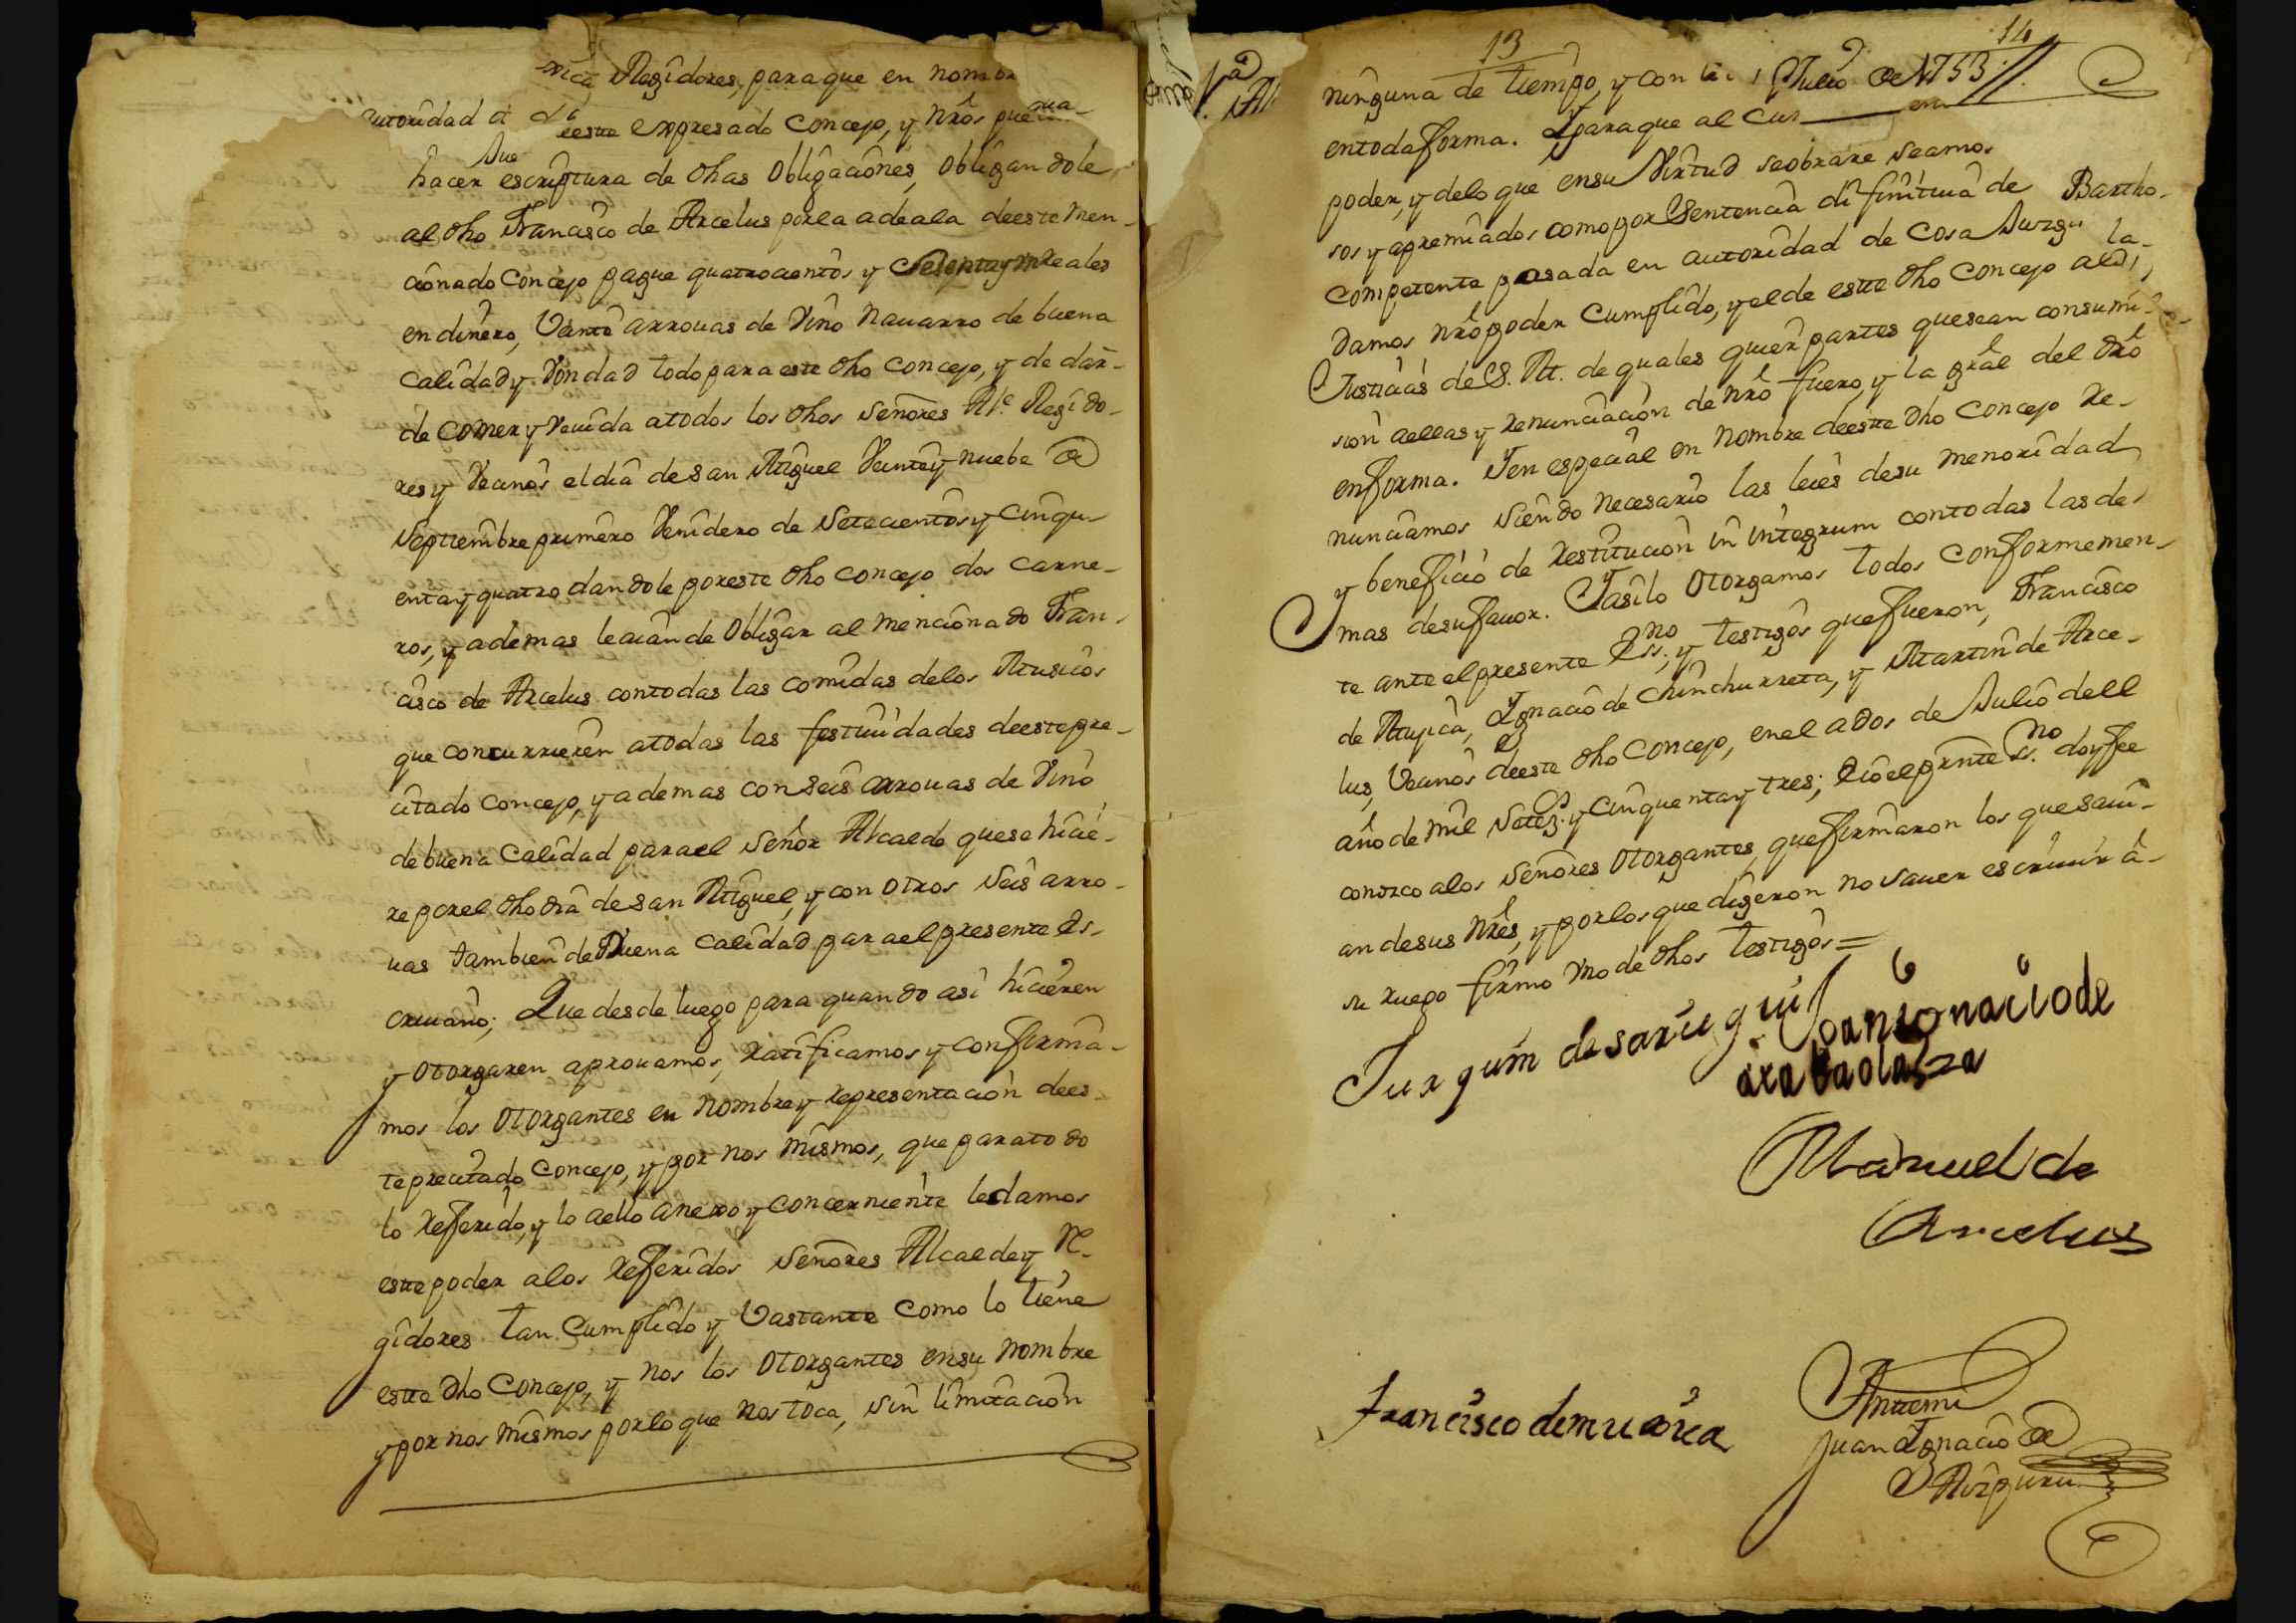 Regidores, para que en nombr
autoridad
deeste expresado Concejo, y nrôs pue
hacer escriptura de dhas Obligaciones, Obligandole
al dho Francisco de Arcelus por la adeala deeste men-
cionado Concejo pague quatrocientos y sesenta y reales
en dinero, Veinte arrouas de Vino Nauarro de buena
Calidad y Vondad todo para este dho Concejo, y de dar-
de comer y veuida atodos los dhos Señores Alc.e Regido-
res y Vecinos el dia de san Miguel Veinte y nuebe de
Septiembre primero Venidero de Setecientos y Cinqu-
enta y quatro dandole por este dho Concejo dos Carne-
ros, y ademas leaian de Obligar al mencionado Fran-
cisco de Arcelus con todas las comidas delos Musicos
que concurrieren atodas las festiuidades deeste pre-
citado Concejo, y ademas con seis arrouas de Vino
de buena Calidad para el Señor Alcalde que se hicie-
re por el dho dia de san Miguel, y con otros seis arro-
uas tambien de Buena calidad para el presente Es-
criuano; Que desde luego para quando asi hicieren
y Otorgaren aprouamos, ratificamos y conforma-
mos los Otorgantes en nombre y representacion dees-
te precitado Concejo, y por nos mismos, que para todo
lo Referido, y lo aello anexo y concerniente le damos
este poder alos Referidos Señores Alcalde y Re-
gidores tan Cumplido y Vastante como lo tiene
este dho Concejo, y nos los Otorgantes en su nombre
y por nos mismos por lo que nos toca, sin limitacion
13
14
ninguna de tiempo, y con
Julio de 1753
en toda forma. Y para que al
poder, y delo que en su Virtud se obrare seamos
sos y apremiados como por Sentencia difinitiua de
Bartho-
Competente pasada en autoridad de Cosa Juzg
la-
Damos nrô poder Cumplido, y el de este dho Concejo alas
Justicias de S. M. de quales quier partes que sean con sumi-
sion aellas y renunciacion de nrô fuero, y la grâl del drô
en forma. Y en especial en nombre deeste dho Concejo Re-
nunciamos siendo necesario las leies de su menoridad
y beneficio de restitucion in integrum con todas las de
mas de su fauor. Y asi lo Otorgamos todos Conformemen-
te ante el presente Ess.no y testigos que fueron, Francisco
de Mugica, Ygnacio de Chinchurreta, y Martin de Arce-
lus, Vecinos deeste dho Concejo, en el a dos de Julio dell
año de mil Setez.s y Cinquenta y tres; E io el press.te ss.no doy fee
conozco alos Señores Otorgantes, que firmaron los que saui-
an de sus nrês, y por los que digeron no sauer escriuir a-
su ruego firmo vno de dhos testigos =
Juan Ignacio de
arabaolaza
Manuel de
Arcelus
francisco de muxica
Antemi
Juan Ygnacio de
Aizpuru